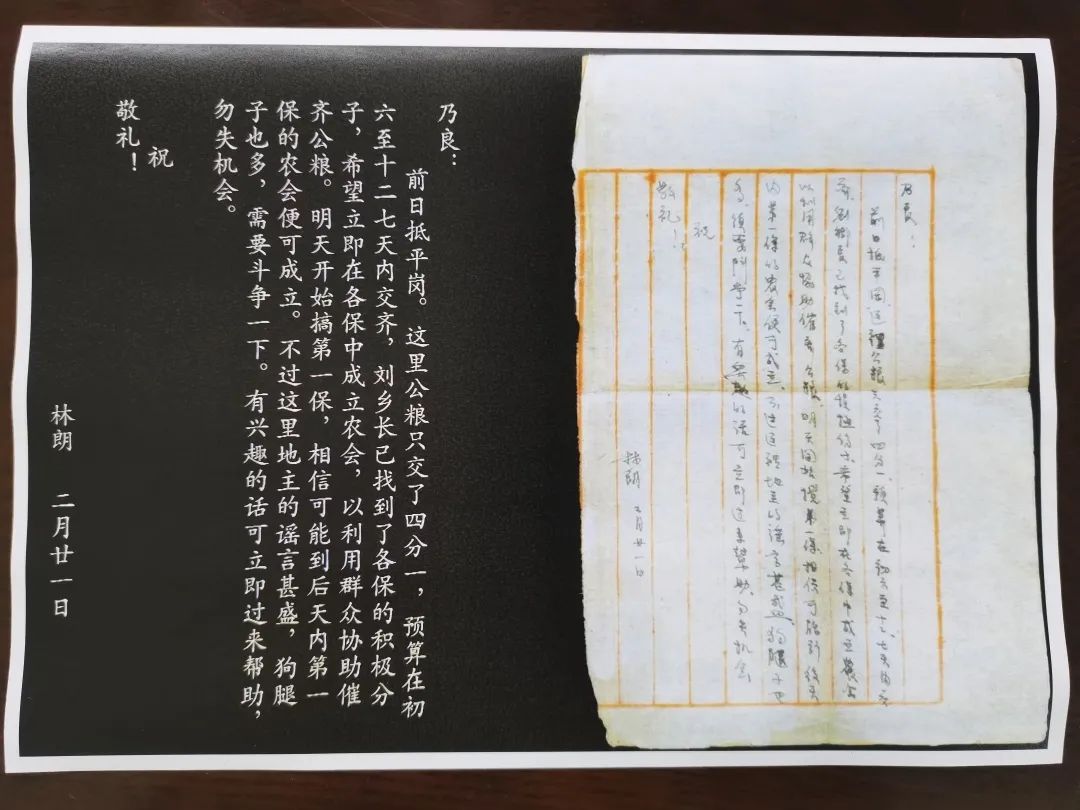 乃良：
前日抵平岡。這裡公粮只交了四分一，預算在初六至十二，七天内交
齊，劉鄉長已找到了各保的積極份子，希望立即在各保中成立農会
以利用群众協助催齊公粮。明天開始搅第一保，相信可能到後天
内第一保的农会便可成立。不过這裡地主的謠言甚盛，狗腿子也
多，須要鬥争一下。有兴趣的话可立即过来幫助，勿失机会
祝
敬礼！
林朗 二月廿一日
乃良：
前日抵平岗。这里公粮只交了四分一，预算在初
六至十二七天内交齐，刘乡长已找到了各保的积极分
子，希望立即在各保中成立农会，以利用群众协助催
齐公粮。明天开始搞第一保，相信可能到后天内第一
保的农会便可成立。不过这里地主的谣言甚盛，狗腿
子也多，需要斗争一下。有兴趣的话可立即过来帮助，
勿失机会。
祝
敬礼！
林朗 二月廿一日